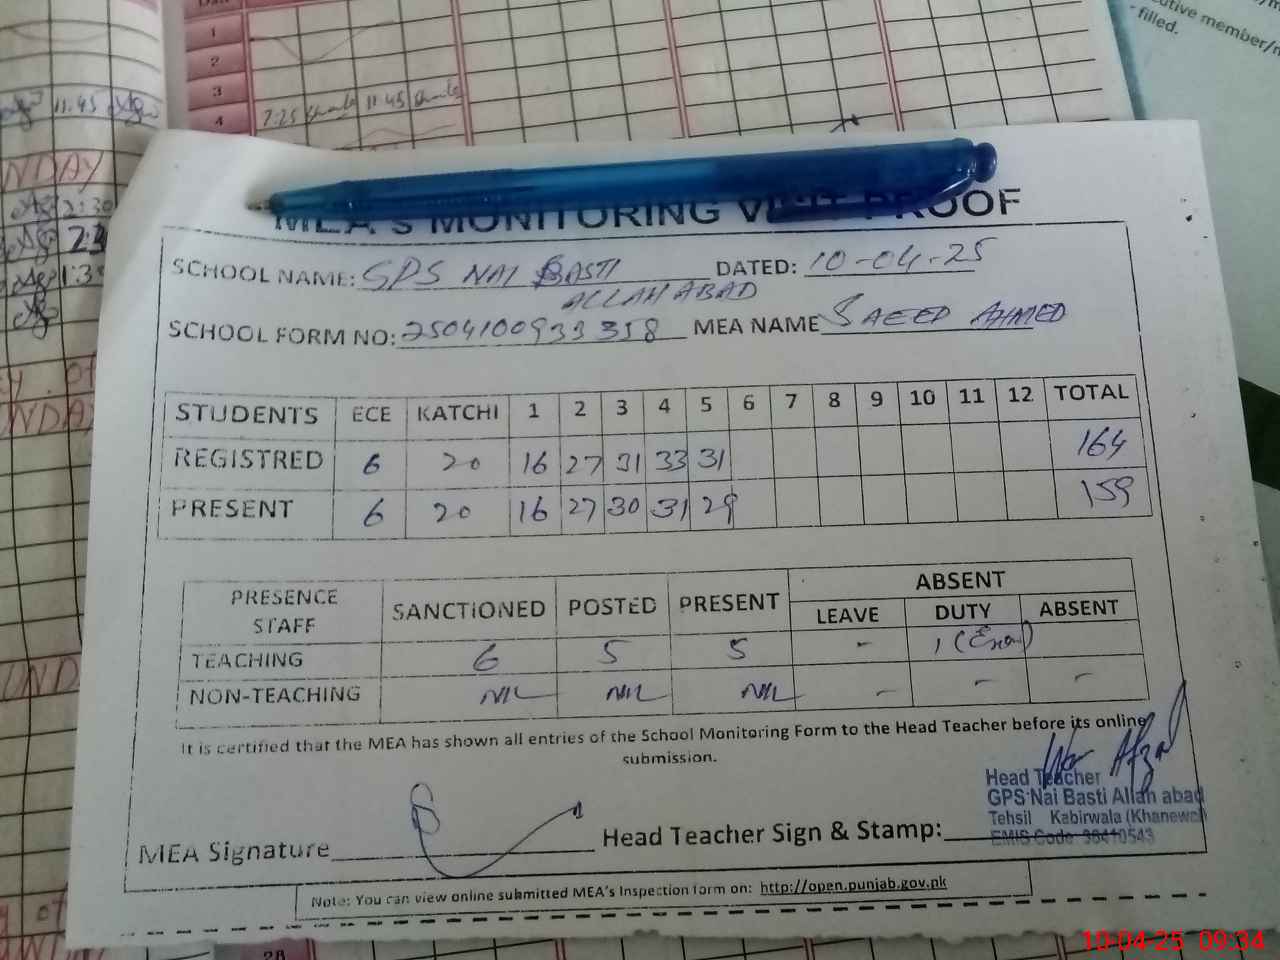 1
2
3
4
7:25 11:45
11:45
NDAY
2:30
- filled.
MEA'S MONITORING VISIT PROOF
SCHOOL NAME: GPS NAI BASTI DATED: 10-04-25
ALLAHABAD
SCHOOL FORM NO: 2504100933358 MEA NAME SAEED AHMED
STUDENTS ECE KATCHI 1 2 3 4 5 6 7 8 9 10 11 12 TOTAL
REGISTRED 6 20 16 27 31 33 31 164
PRESENT 6 20 16 27 30 31 29 159
PRESENCE STAFF SANCTIONED POSTED PRESENT ABSENT
LEAVE DUTY ABSENT
TEACHING 6 5 5 - 1 (Exam)
NON-TEACHING NIL NIL NIL - - -
It is certified that the MEA has shown all entries of the School Monitoring Form to the Head Teacher before its online
submission.
Head Teacher
GPS Nai Basti Allah abad
Tehsil Kabirwala (Khanewal)
EMIS Code 36410543
MEA Signature Head Teacher Sign & Stamp:
Note: You can view online submitted MEA's Inspection form on: http://open.punjab.gov.pk
28
10-04-25 09:34